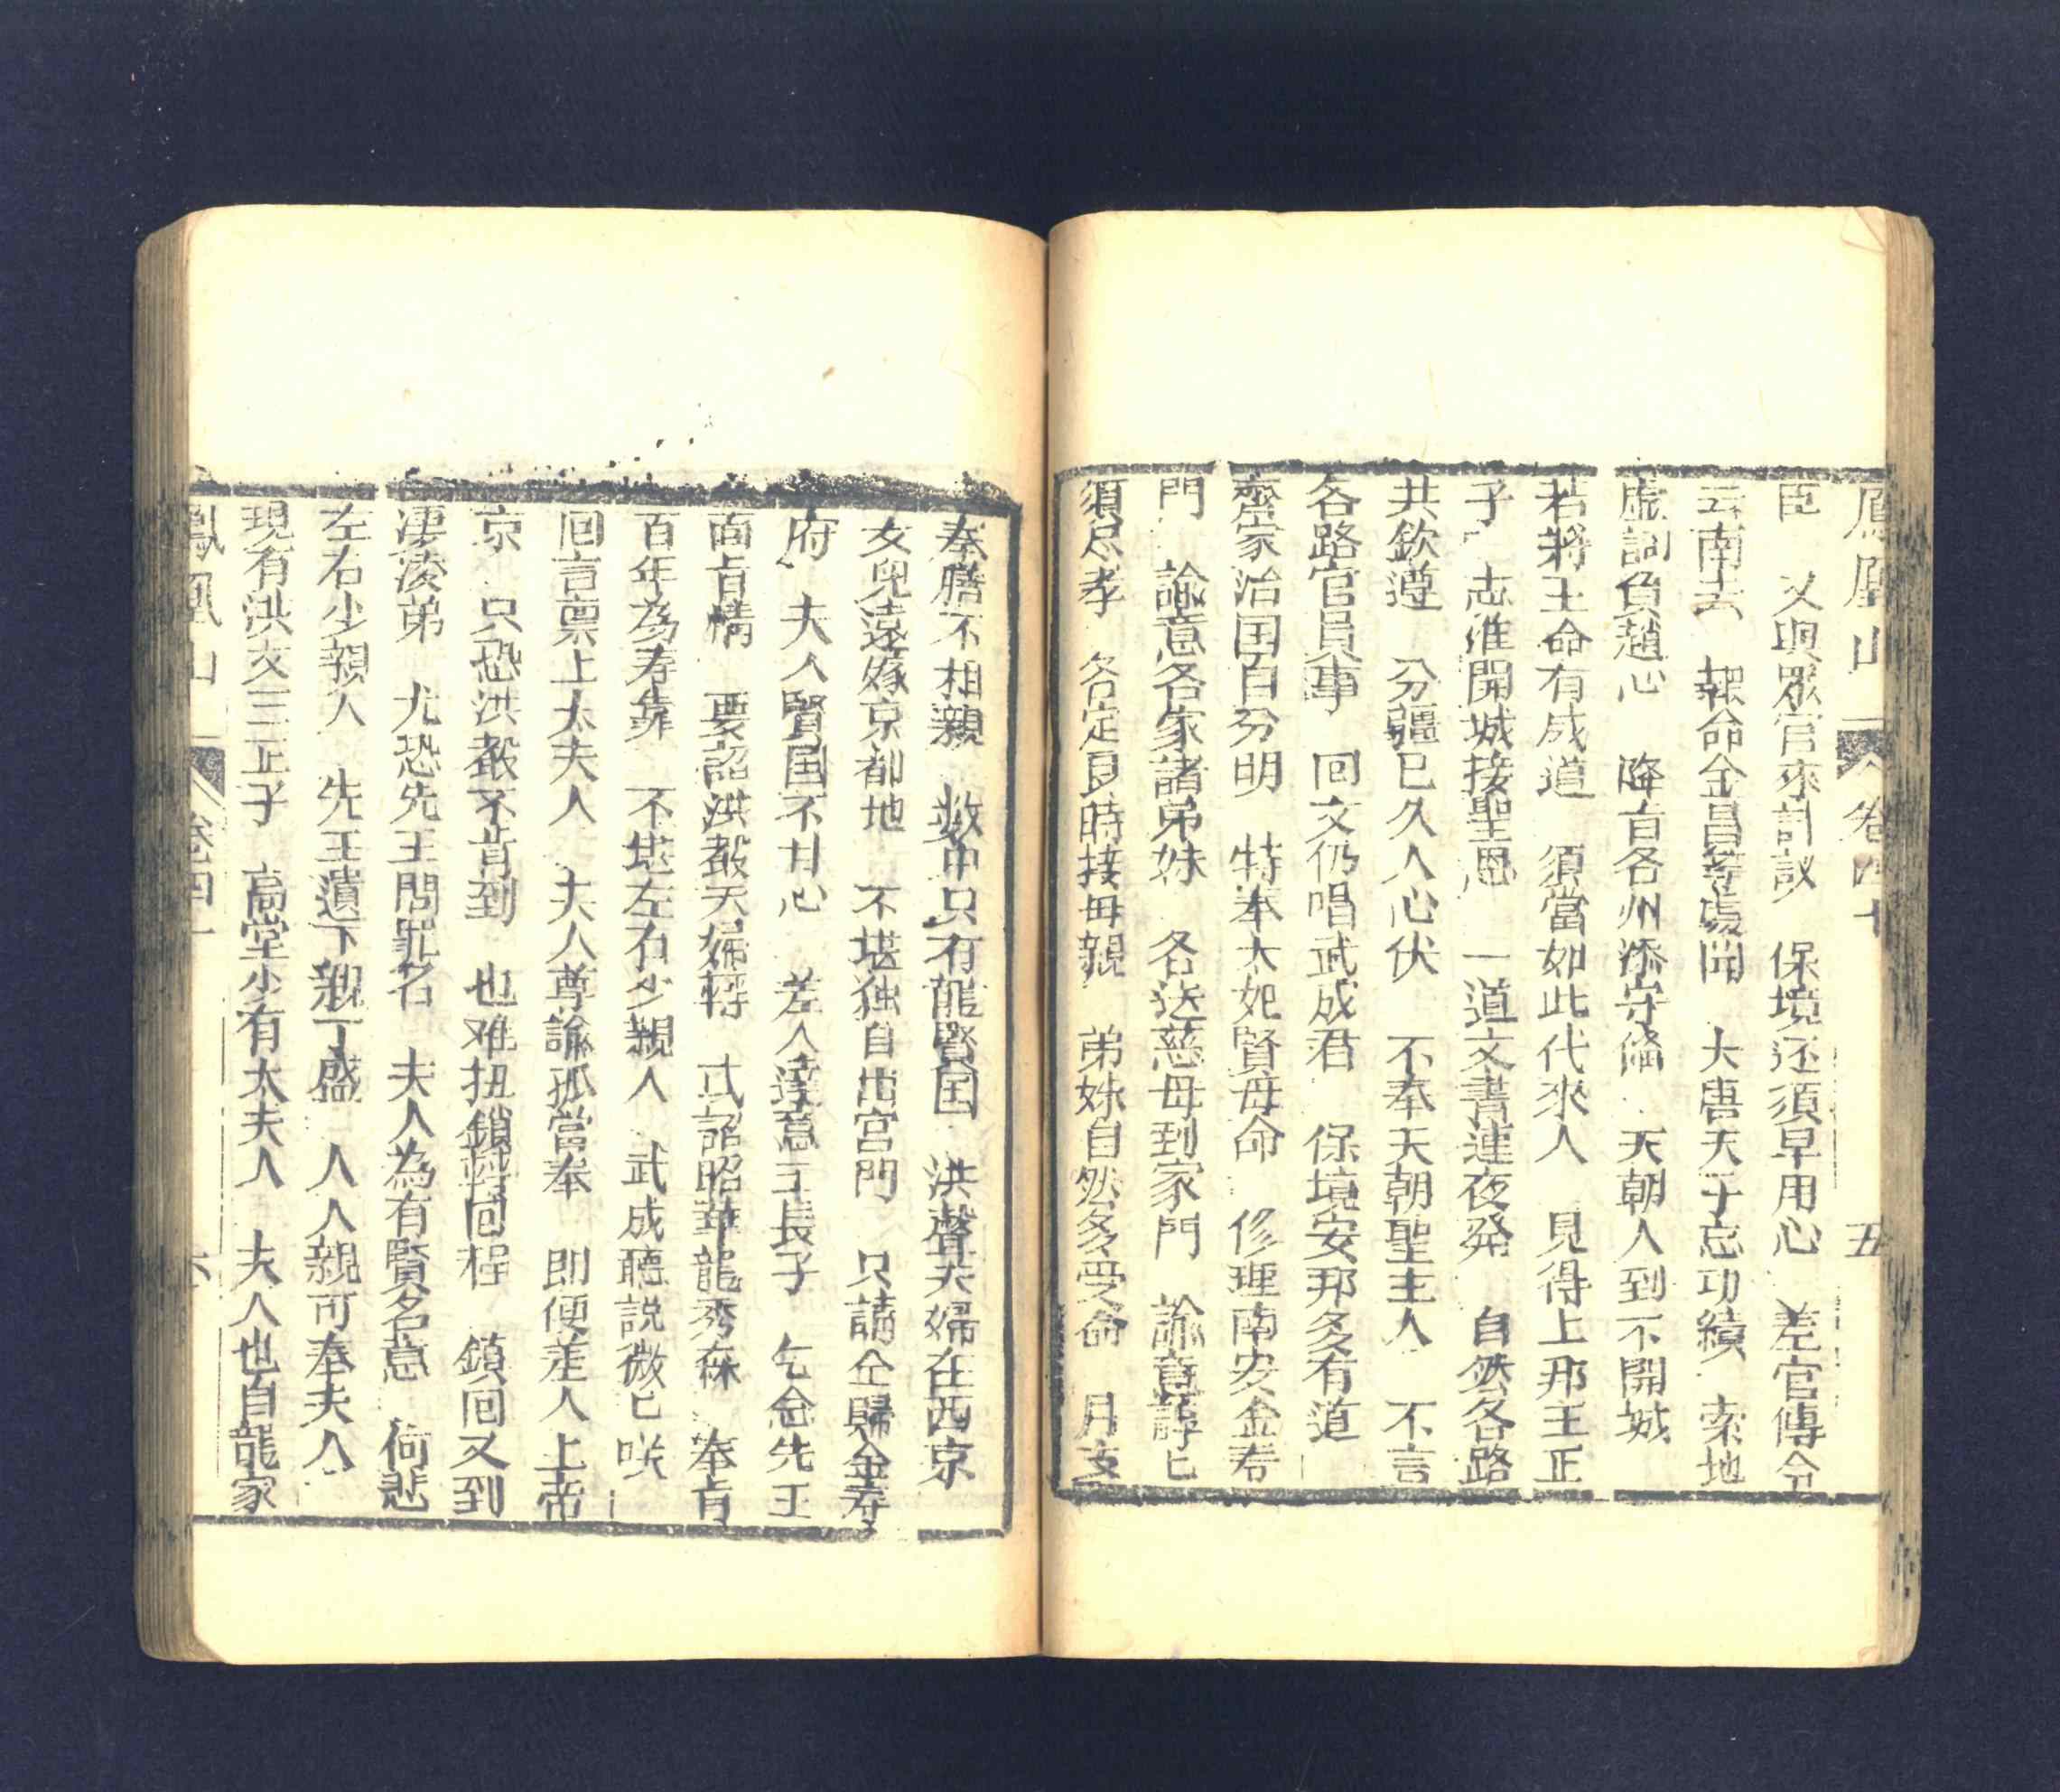 鳳凰山 卷四十 五
臣 又與眾官來討議 保境还須早用心 差官傳令
云南去 報命金昌等處聞 大唐天子忘功績 索地
虛詞負趙心 降旨各州添守俻 天朝人到不開城
若將王命有成道 須當如此代來人 見得上那王正
子 志淮開城接聖恩 一道文書連夜発 自然各路
共欽遵 分疆已久人心伏 不奉天朝聖主人 不言
各路官員事 回文仍唱武成君 保境安邦多有道
齊家治国自分明 特奉太妃賢母命 修理南安金寿
門 諭意各家諸弟妹 各送慈母到家門 諭意諄匕
須尽孝 各定良時接母親 弟妹自然多受命 月支
奉膳不相親 数中只有龍賢国 洪聲夫婦在西京
女兒遠嫁京都地 不堪独自出宫門 只請仝歸金寿
府 夫人賢国不甘心 差人達意王長子 乞念先王
面旨情 要詔洪夫婦轉 式詔昭華龍秀森 奉旨
百年為寿靠 不堪左右少親人 武成聽説微匕咲
囘言禀上太夫人 夫人尊諭孤當奉 即便差人上帝
京 只恐洪不肯到 也难扭鎖轉囘程 鎖回又到
凄凌弟 尤恐先王問罪名 夫人為有賢名意 何悲
左右少親人 先王遺下親丁盛 人人親可奉夫人
現有洪友三正子 高堂少有太夫人 夫人也自龍家
鳳凰山 卷四十 六